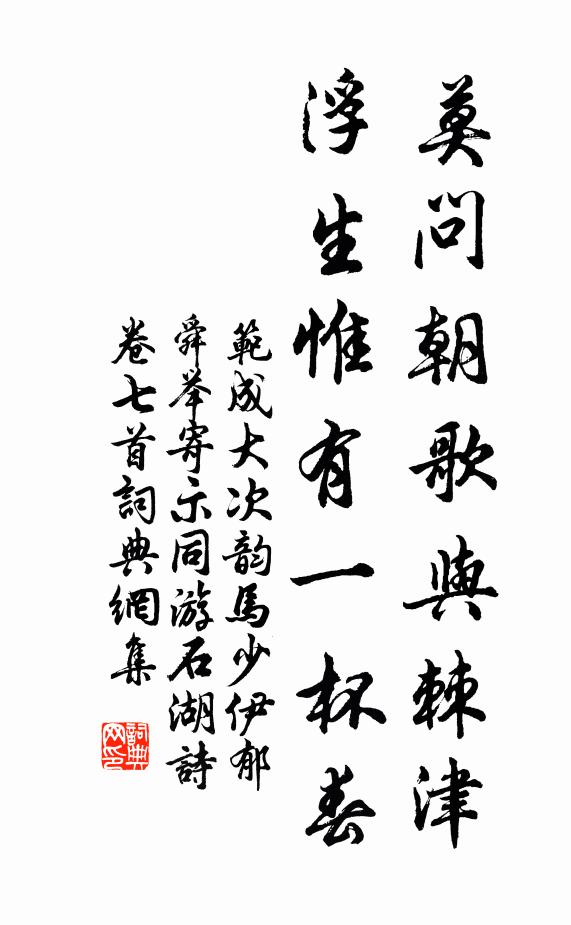 莫問朝歌與棘津
浮生惟有一杯春
範成大次韵馬少伊郁
舜举寄示同游石湖詩
卷七首詞典網集
詞典网印